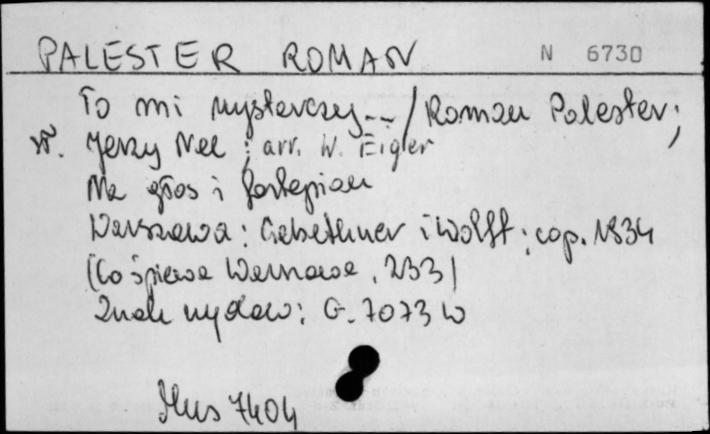 PALESTER ROMAN N 6730
To mi wystarczy... / Roman Palester;
sł. Jerzy Nel ; arr. W. Eigler
Na głos i fortepian
Warszawa : Gebethner i Wolff ; cop. 1934
(Co śpiewa Warszawa, 233)
Znak wydaw: G. 7073 W
Mus 7404